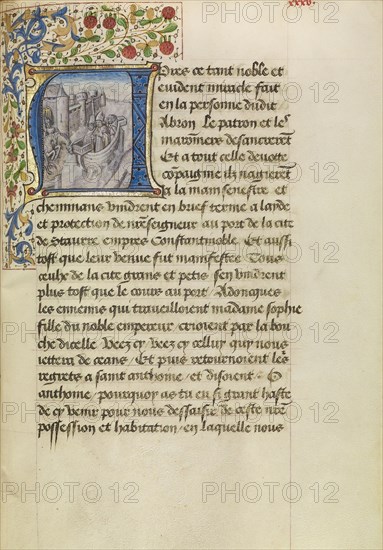 xxxv
Apres ce tant noble et
evident miracle fait
en la personne dudit
Abron Le patron et les
maronniers desancrerent
Et a tout celle devote
compaignie ilz nagierent
a la main senestre et
cheminans vindrent en brief terme a laide
et protection de nostre seigneur au port de la cite
de Staurre empres Constantinoble Et aussi
tost que leur venue fut manifestee Tous
ceulx de la cite grans et petis sen vindrent
plus tost que le cours au port Adoncques
les ennemis qui travailloient madame sophie
fille du noble empereur crioient par la bou
che dicelle Veez cy Veez cy celluy qui nous
iettera de ceans / Et puis retournoient les
regrets a saint anthoine et disoient O
anthoine pourquoy as tu eu si grant haste
de cy venir pour nous dessaisir de ceste nostre
possession et habitation / en laquelle nous
PHOTO 12